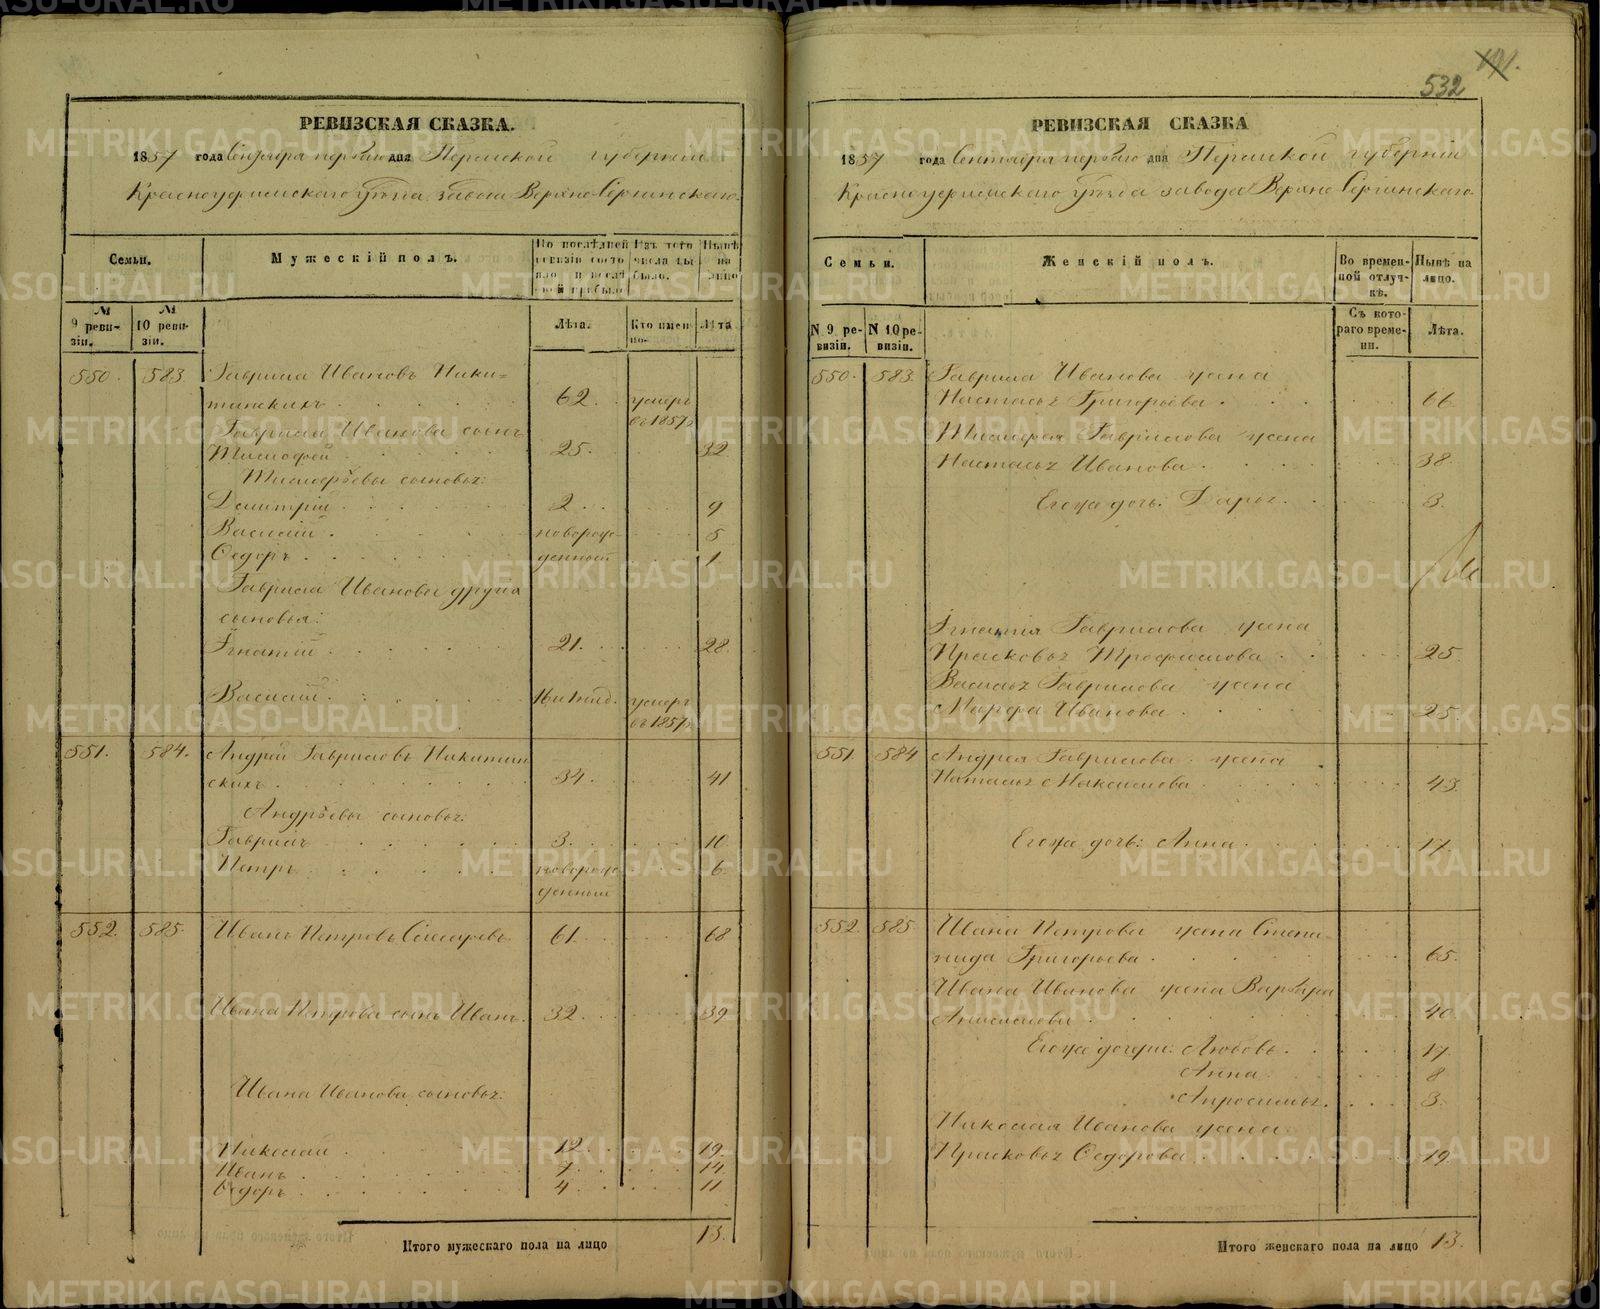 РЕВИЗСКАЯ СКАЗКА.
1857 года Сентября перваго дня Пермской губернiи
Красноуфимскаго уѣзда завода Верхне-Сергинскаго
Семьи.
Мужескiй полъ.
По послѣдней ревизiи состояло и послѣ оной прибыло
Изъ того числа выбыло.
Нынѣ на лицо
№ 9 ревизiи.
№ 10 ревизiи.
Лѣта.
Кто именно.
Лѣта
550. 583. Гаврила Ивановъ Ники-
тинскихъ 62. умеръ
въ 1857г
Гаврила Иванова сынъ
Тимофей 25. 32.
Тимофѣевы сыновья:
Дмитрiй 2. 9
Василiй новорож- 5
Ѳедоръ денный 1
Гаврила Иванова другiя
сыновья:
Игнатiй 21. 28.
Василiй 16 умеръ
въ 1857г
551. 584. Андрей Гавриловъ Никитин
скихъ 34. 41
Андрѣевы сыновья:
Гаврила 3. 10
Петръ новорож- 6
денный
552. 585. Иванъ Петровъ 61. 68
Ивана Петрова сынъ Иванъ. 32. 39
Ивана Иванова сыновья:
Николай 12. 19.
Иванъ 7. 14.
Ѳедоръ 4. 11
Итого мужескаго пола на лицо 13.
532
РЕВИЗСКАЯ СКАЗКА
1857 года Сентября перваго дня Пермской губернiи
Красноуфимскаго уѣзда завода Верхне-Сергинскаго
Семьи.
Женскiй полъ.
Во временной отлучкѣ.
Нынѣ на лицо.
N 9 ревизiи.
N 10 ревизiи.
Съ котораго времени.
Лѣта.
550. 583. Гаврила Иванова жена
Настасья Григорьева 66
Тимофея Гаврилова жена
Настасья Иванова 38.
Его же дочь: Дарья 3.
Игнатiя Гаврилова жена
Прасковья Трофимова 25.
Василья Гаврилова жена
Марфа Иванова 25.
551. 584 Андрея Гаврилова жена
Наталья Максимова 43.
Его же дочь: Анна 17.
552. 585 Ивана Петрова жена Степа-
нида Григорьева 65.
Ивана Иванова жена Варвара
40
Его же дочери: Любовь 17.
Анна 8
Апросинья 3.
Николая Иванова жена
Прасковья Ѳедорова 19.
Итого женскаго пола на лицо 13.
METRIKI.GASO-URAL.RU